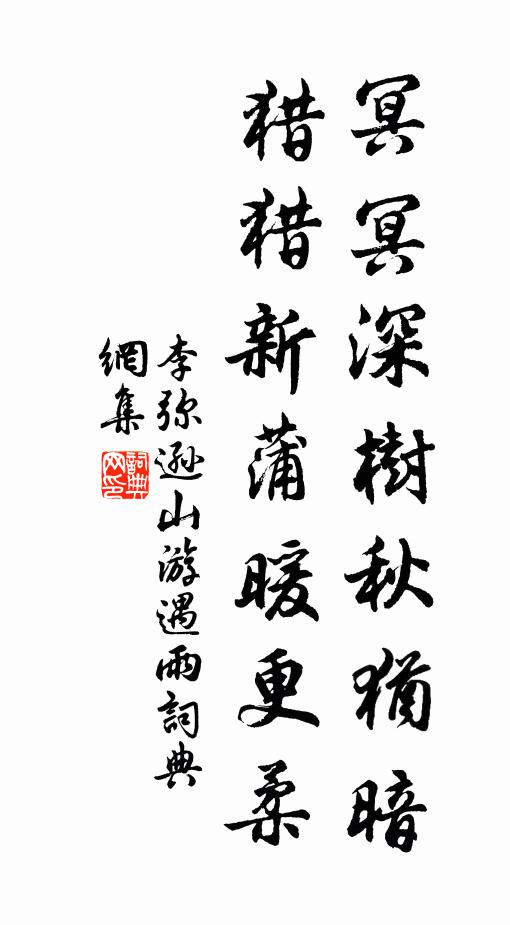 冥冥深樹秋猶暗
猎猎新蒲暖更柔
李弥遜山游遇雨詞典
網集
詞典
网印